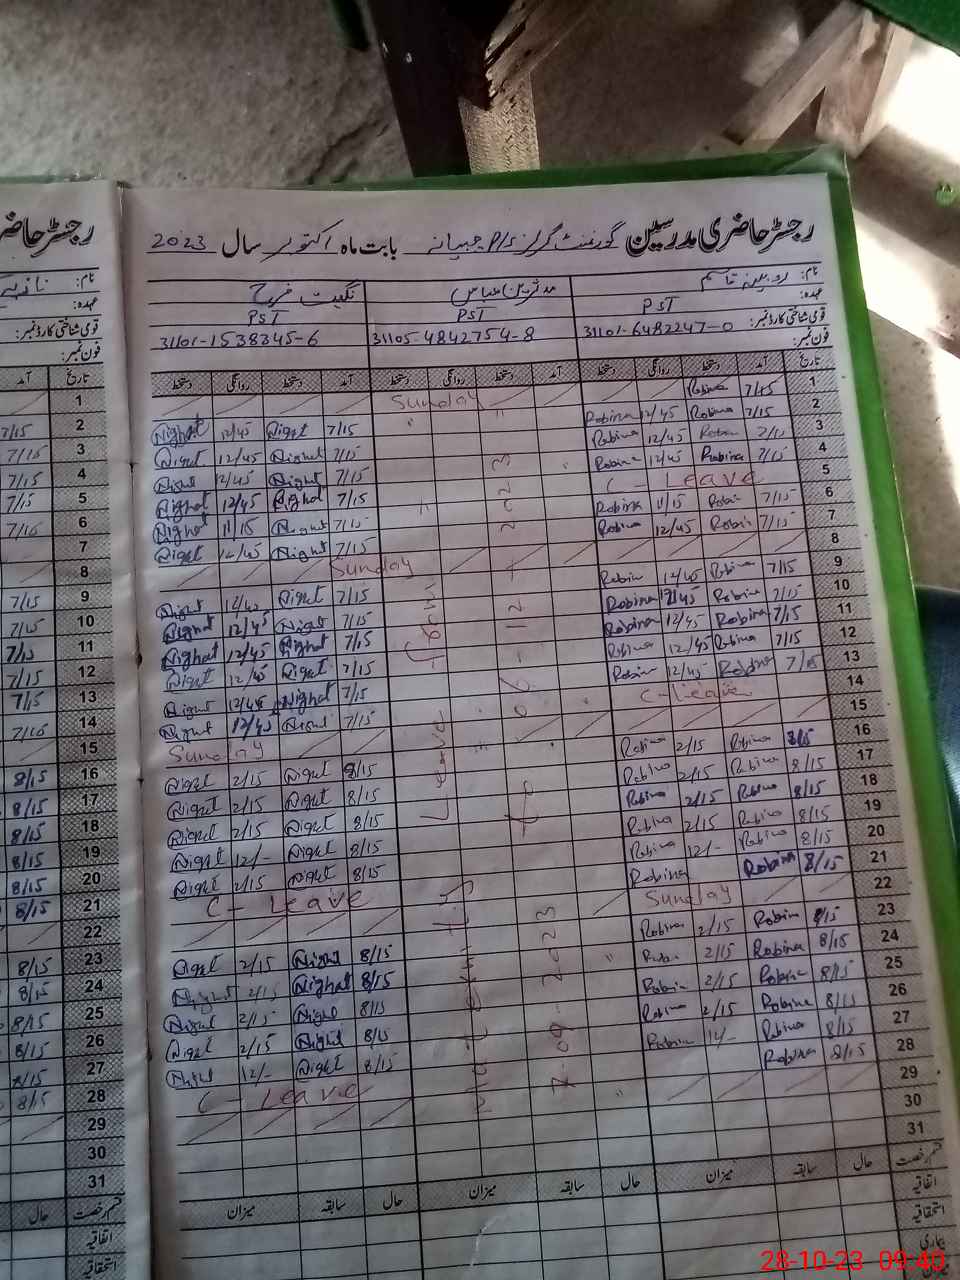 رجسٹر حاضری مدرسین گورنمنٹ گرلز P/S بابت ماہ اکتوبر سال 2023
نام: روبینہ قاسم مدثرین عباس نگہت
عہدہ: PST PST PST
قومی شناختی کارڈ نمبر: 31101-6482247-0 31105-4842754-8 31101-1538345-6
فون نمبر:
تاریخ آمد دستخط روانگی دستخط آمد دستخط روانگی دستخط آمد دستخط روانگی دستخط
1 7/15 Robina Sunday
2 7/15 Robina 12/45 Robina 7/15 Nighat 12/45 Nighat
3 Robina 12/45 Robina 7/15 Nighat 12/45 Nighat
4 7/15 Robina 12/45 Robina 7/15 Nighat 12/45 Nighat
5 C - Leave 7/15 Nighat 12/45 Nighat
6 7/15 Robina 11/15 Robina 7/15 Nighat 11/15 Nighat
7 7/15 Robina 12/45 Robina 7/15 Nighat 12/45 Nighat
8 Sunday
9 7/15 Robina 12/45 Robina 7/15 Nighat 12/45 Nighat
10 7/15 Robina 12/45 Robina 7/15 Nighat 12/45 Nighat
11 7/15 Robina 12/45 Robina 7/15 Nighat 12/45 Nighat
12 7/15 Robina 12/45 Robina 7/15 Nighat 12/45 Nighat
13 7/15 Robina 12/45 Robina 7/15 Nighat 12/45 Nighat
14 C-Leave 7/15 Nighat 12/45 Nighat
15 Sunday
16 8/15 Robina 2/15 Robina 8/15 Nighat 2/15 Nighat
17 8/15 Robina 2/15 Robina 8/15 Nighat 2/15 Nighat
18 8/15 Robina 2/15 Robina 8/15 Nighat 2/15 Nighat
19 8/15 Robina 2/15 Robina 8/15 Nighat 12/- Nighat
20 8/15 Robina 12/- Robina 8/15 Nighat 2/15 Nighat
21 8/15 Robina Robina C - Leave
22 Sunday
23 8/15 Robina 2/15 Robina 8/15 Nighat 2/15 Nighat
24 8/15 Robina 2/15 Robina 8/15 Nighat 2/15 Nighat
25 8/15 Robina 2/15 Robina 8/15 Nighat 2/15 Nighat
26 8/15 Robina 2/15 Robina 8/15 Nighat 2/15 Nighat
27 8/15 Robina 12/- Robina 8/15 Nighat 12/- Nighat
28 8/15 Robina C - Leave
29
30
31
Maternity Leave from
7-09-2023 to 06-12-2023
قسم رخصت حال سابقہ میزان حال سابقہ میزان حال سابقہ میزان
اتفاقیہ
استحقاقیہ
بیماری
رجسٹر حاضر
نام:
عہدہ:
قومی شناختی کارڈ نمبر:
فون نمبر:
تاریخ آمد
1
2 7/15
3 7/15
4 7/15
5 7/15
6 7/15
7
8
9 7/15
10 7/15
11 7/15
12 7/15
13 7/15
14 7/15
15
16 8/15
17 8/15
18 8/15
19 8/15
20 8/15
21 8/15
22
23 8/15
24 8/15
25 8/15
26 8/15
27 8/15
28 8/15
29
30
31
قسم رخصت حال
اتفاقیہ
استحقاقیہ
28-10-23 09:40